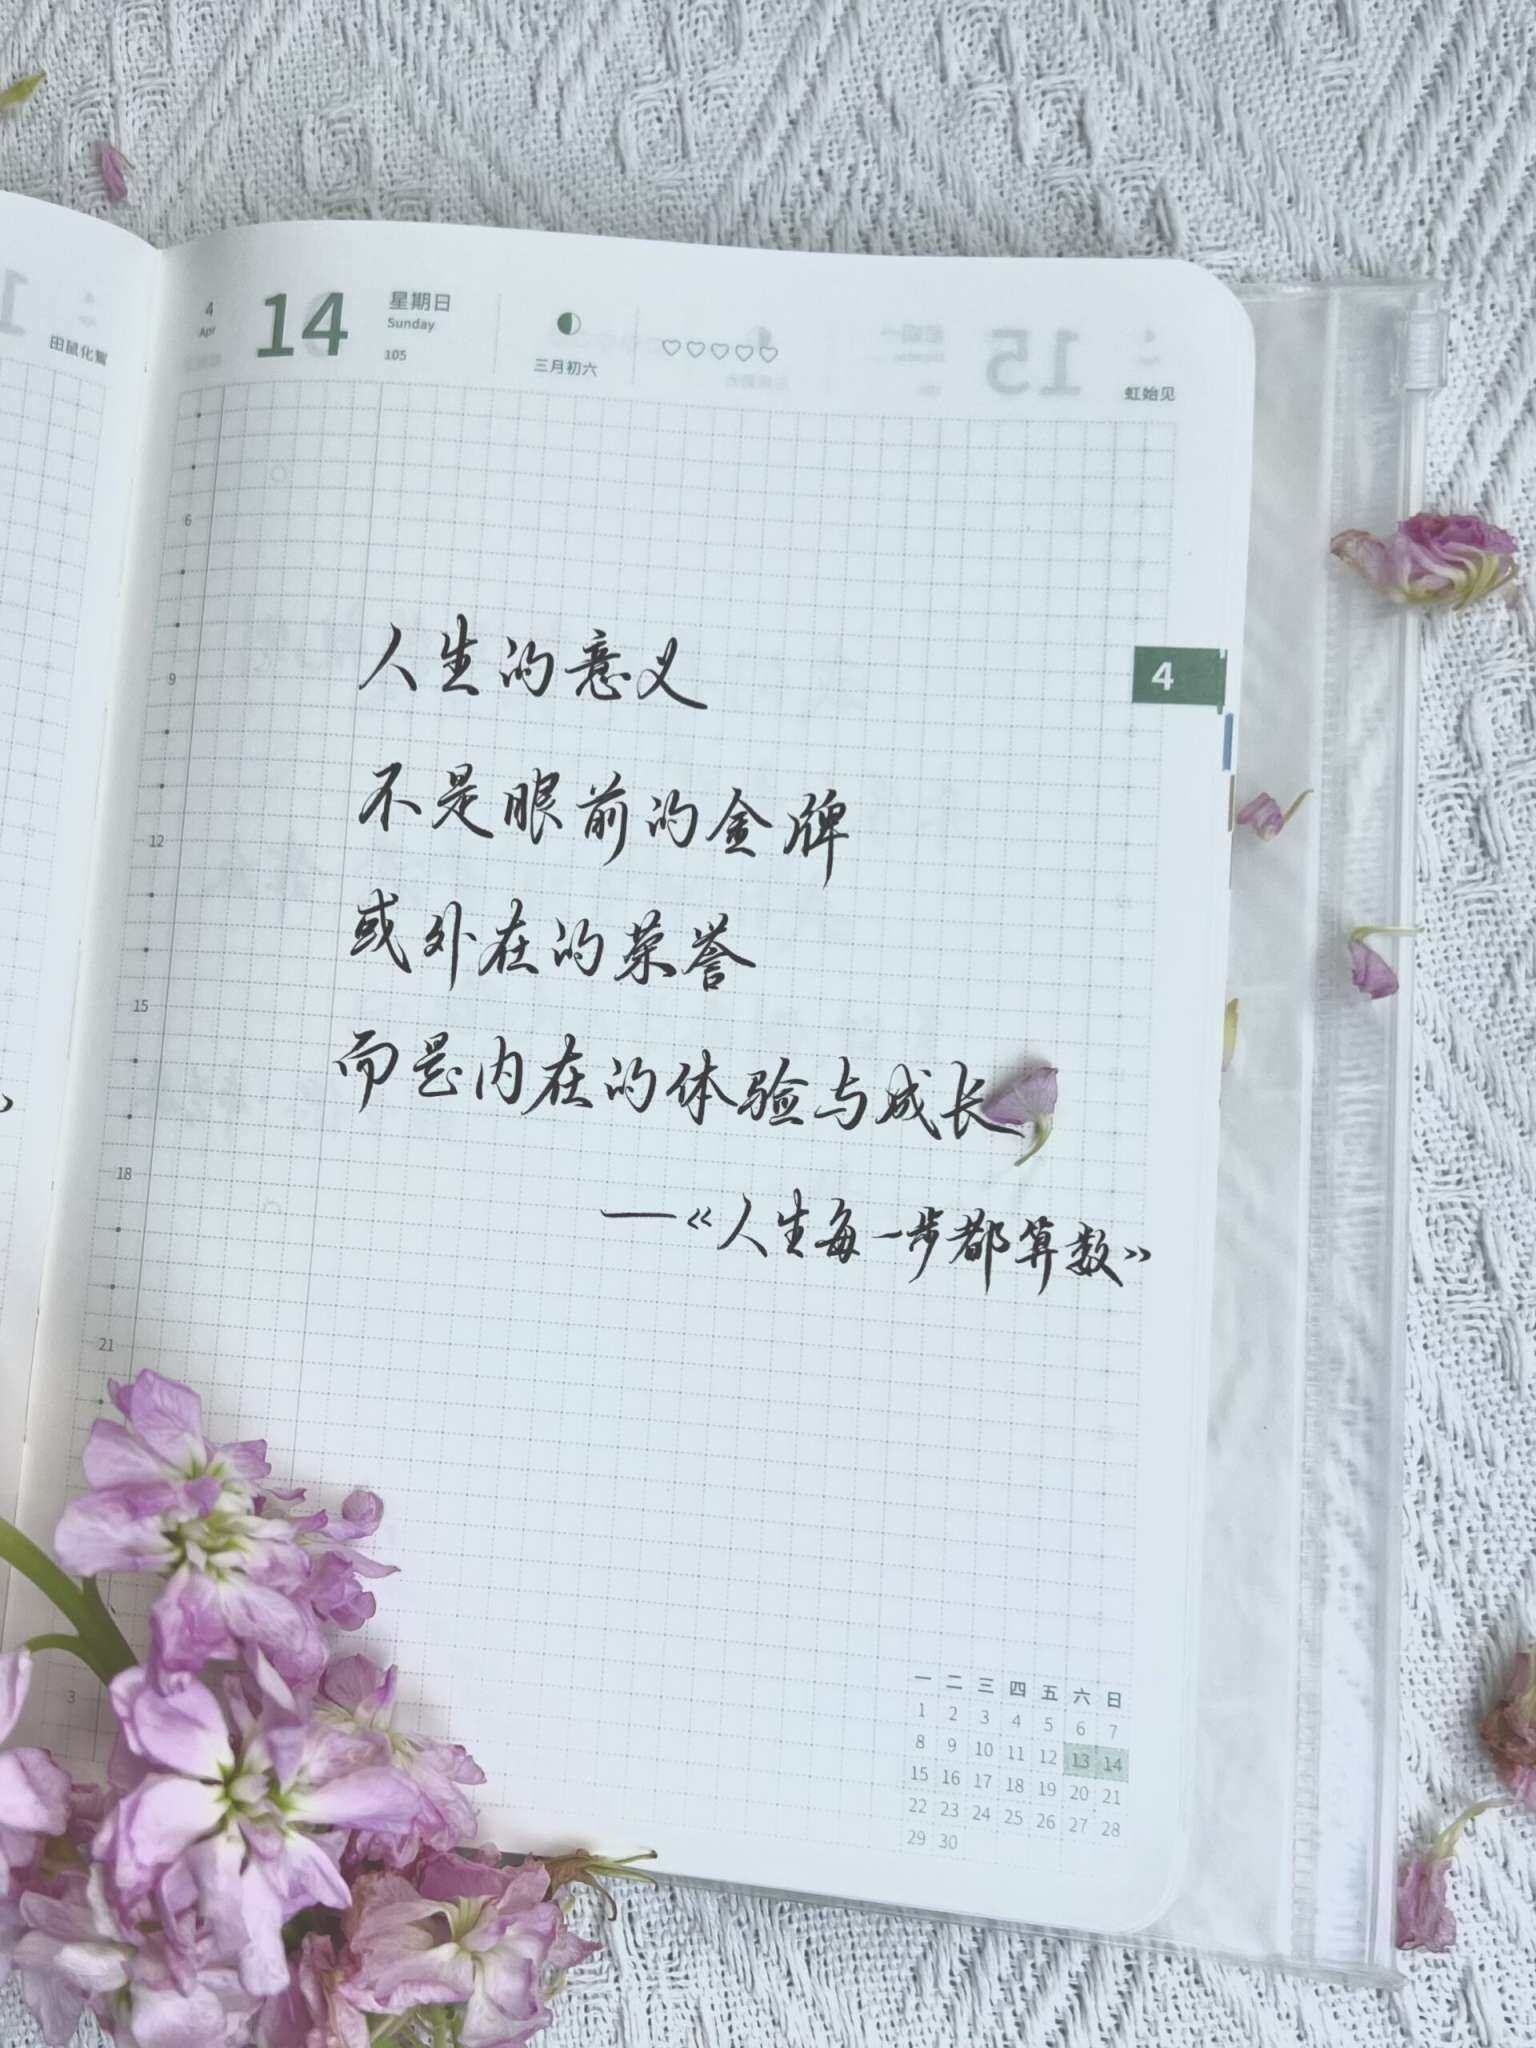 田鼠化鴽
4
Apr
14
星期日
Sunday
105
三月初六
虹始见
4
6
9
12
15
18
21
3
人生的意义
不是眼前的金牌
或外在的荣誉
而是内在的体验与成长
——《人生每一步都算数》
一 二 三 四 五 六 日
1 2 3 4 5 6 7
8 9 10 11 12 13 14
15 16 17 18 19 20 21
22 23 24 25 26 27 28
29 30